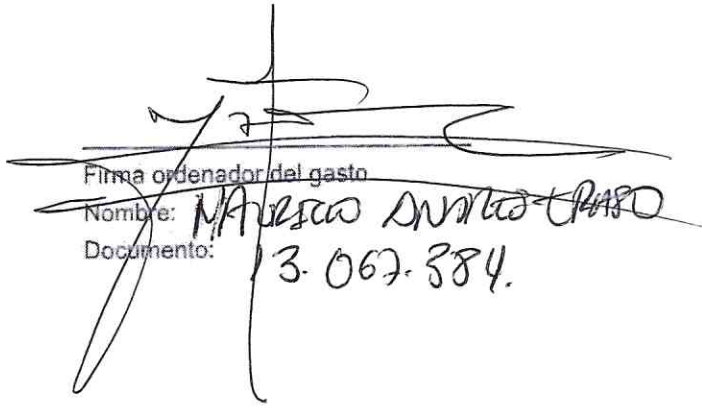 Firma ordenador del gasto
Nombre: MAURICIO ANDRES ERASO
Documento: 13.067.384.